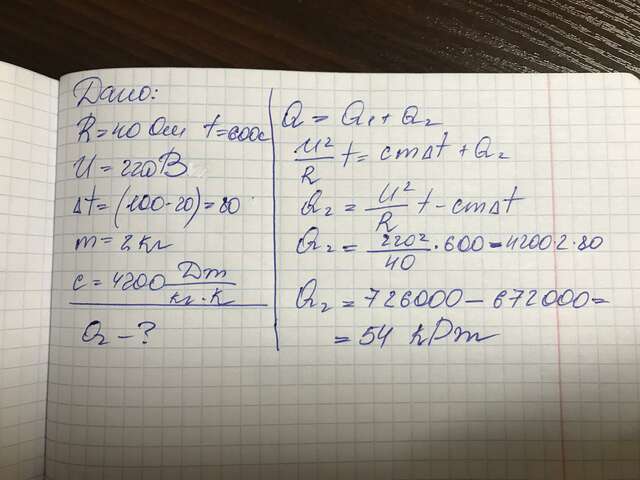 Дано:
R=40 Ом t=600с
U=220В
Δt=(100-20)=80
m=2кг
c=4200 Дж/кг·К
Q₂-?
Q = Q₁+Q₂
U²/R t=cmΔt+Q₂
Q₂=U²/R t-cmΔt
Q₂=220²/40·600-4200·2·80
Q₂=726000-672000=
=54 кДж